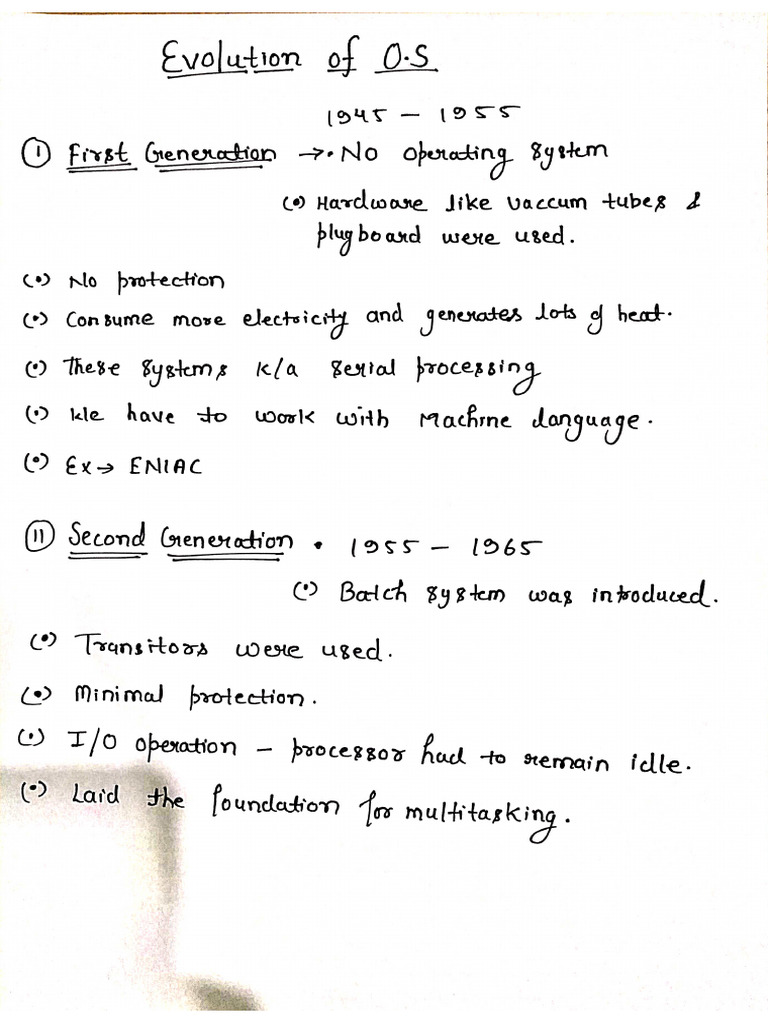 Evolution of O.S
1945 – 1955
① First Generation →• No operating system
(•) Hardware like vaccum tubes &
plugboard were used.
(•) No protection
(•) Consume more electricity and generates lots of heat.
(•) These systems k/a serial processing
(•) We have to work with Machine language.
(•) Ex → ENIAC
⑪ Second Generation • 1955 – 1965
(•) Batch system was introduced.
(•) Transitors were used.
(•) Minimal protection.
(•) I/O operation – processor had to remain idle.
(•) Laid the foundation for multitasking.